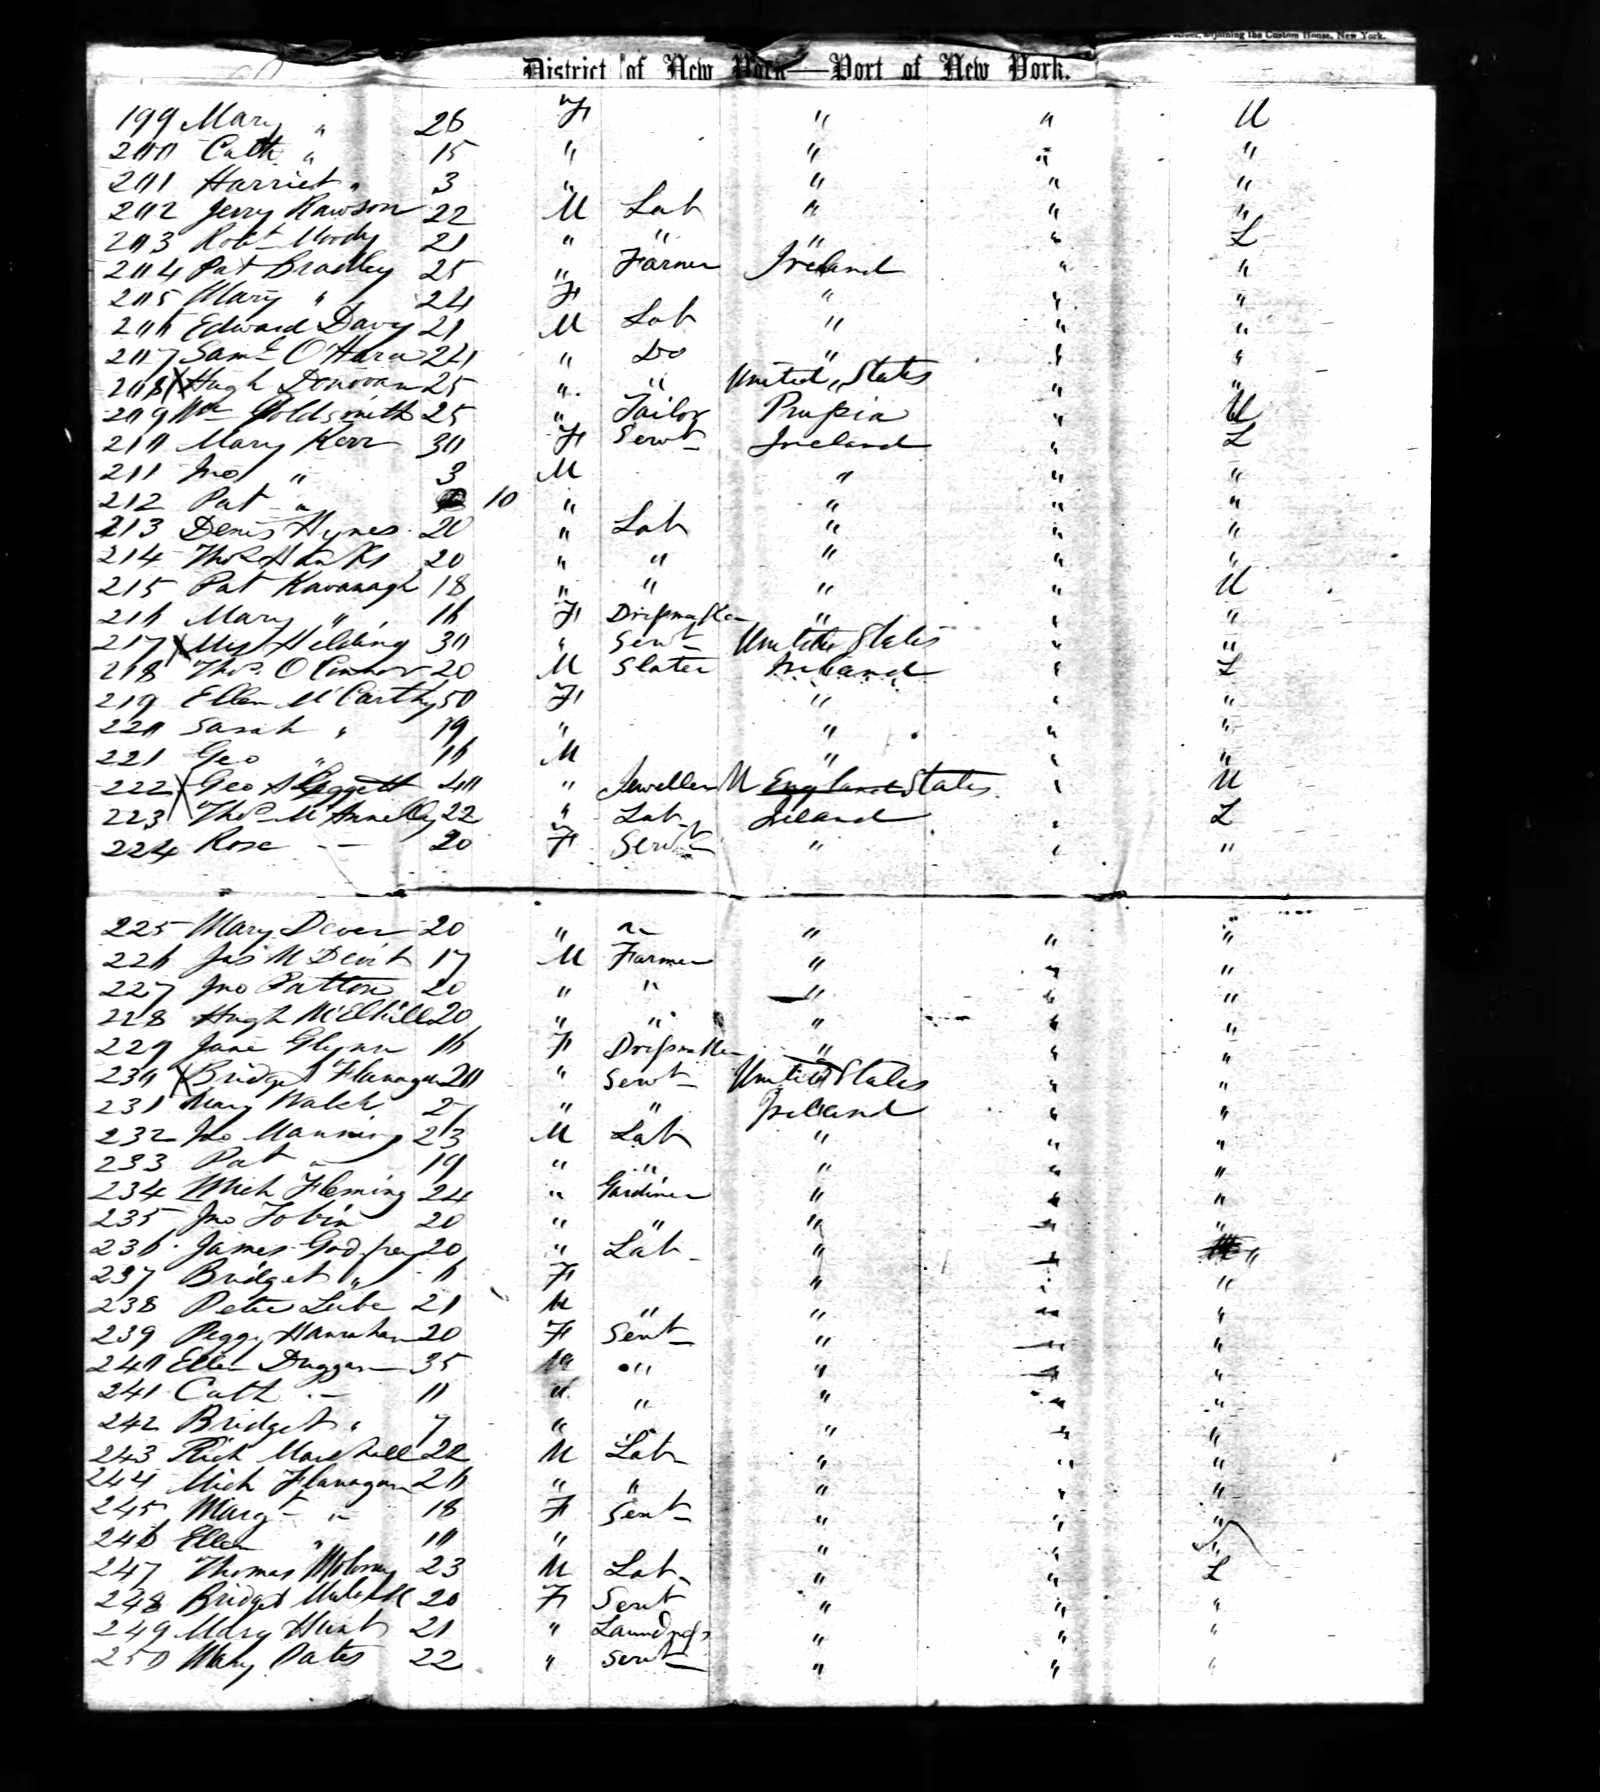 adjoining the Custom House, New York.
District of New York—Port of New York.
199 Mary " 26 F " " U
200 Cath " 15 " " " "
201 Harriet " 3 " " " "
202 Jerry Rawson 22 M Lab " " "
203 Robt Moody 21 " " " " L
204 Pat Bradley 25 " Farmer Ireland " "
205 Mary " 24 F " " "
206 Edward Davy 21 M Lab " " "
207 Saml O'Hara 24 " Do " " "
208 X Hugh Donovan 25 " " United States " "
209 Wm Goldsmith 25 " Tailor Prussia " U
210 Mary Kerr 30 F Servt Ireland " L
211 Jno " 3 M " " "
212 Pat " 10 " " " "
213 Denis Hynes 20 " Lab " " "
214 Thos 20 " " " " "
215 Pat Kavanagh 18 " " " " U
216 Mary " 16 F Dressmaker " " "
217 X 30 " Servt United States " "
218 Thos O'Connor 20 M Slater Ireland " L
219 Ellen McCarthy 50 F " " "
220 Sarah " 19 " " " "
221 Geo " 16 M " " "
222 X Geo 40 " Jeweller U England States " U
223 Thos 22 " Lab Ireland " L
224 Rose -- 20 F Servt " " "
225 Mary Dever 20 " " " " "
226 Jas McDevit 17 M Farmer " " "
227 Jno Patton 20 " " " " "
228 Hugh McElhill 20 " " " " "
229 Jane Glynn 16 F Dressmaker " " "
230 X Bridget Flanagan 20 " Servt United States " "
231 Mary Walsh 21 " " Ireland " "
232 Jno Manning 23 M Lab " " "
233 Pat " 19 " " " " "
234 Mich Fleming 24 " Gardiner " " "
235 Jno Tobin 20 " " " " "
236 James Godfrey 20 " Lab " " "
237 Bridget " 16 F " " "
238 Peter 21 M " " " "
239 Peggy Hanrahan 20 F Servt " " "
240 Ellen Duggan 35 " " " "
241 Cath - 11 " " " " "
242 Bridget " 7 " " " "
243 Rich Marshall 22 M Lab " " "
244 Mich Flanagan 26 " " " " "
245 Margt " 18 F Servt " " "
246 Ellen " 10 " " " "
247 Thomas Molony 23 M Lab " " L
248 Bridget 20 F Servt " " "
249 Mary Hunt 21 " Laundress " " "
250 Mary Oates 22 " Servt " " "